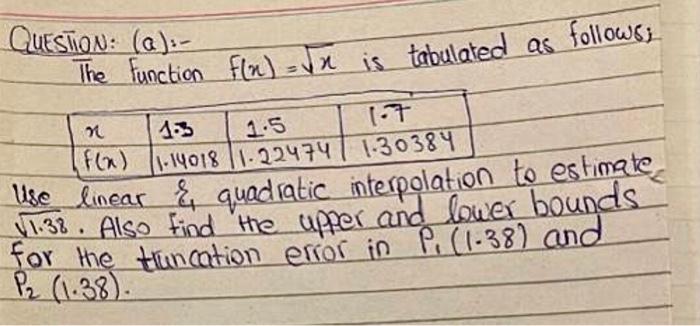 QUESTION: (a):-
The function f(x) = √x is tabulated as follows;
x 1.3 1.5 1.7
f(x) 1.14018 1.22474 1.30384
Use linear & quadratic interpolation to estimate
√1.38. Also find the upper and lower bounds
for the truncation error in P₁ (1.38) and
P₂ (1.38).